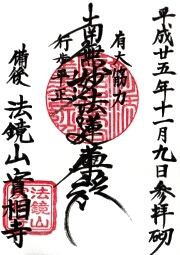 平成廿五年十一月九日参拝砌
有大筋力
行歩平正
南無妙法蓮華経
備後 法鏡山 實相寺
法鏡山